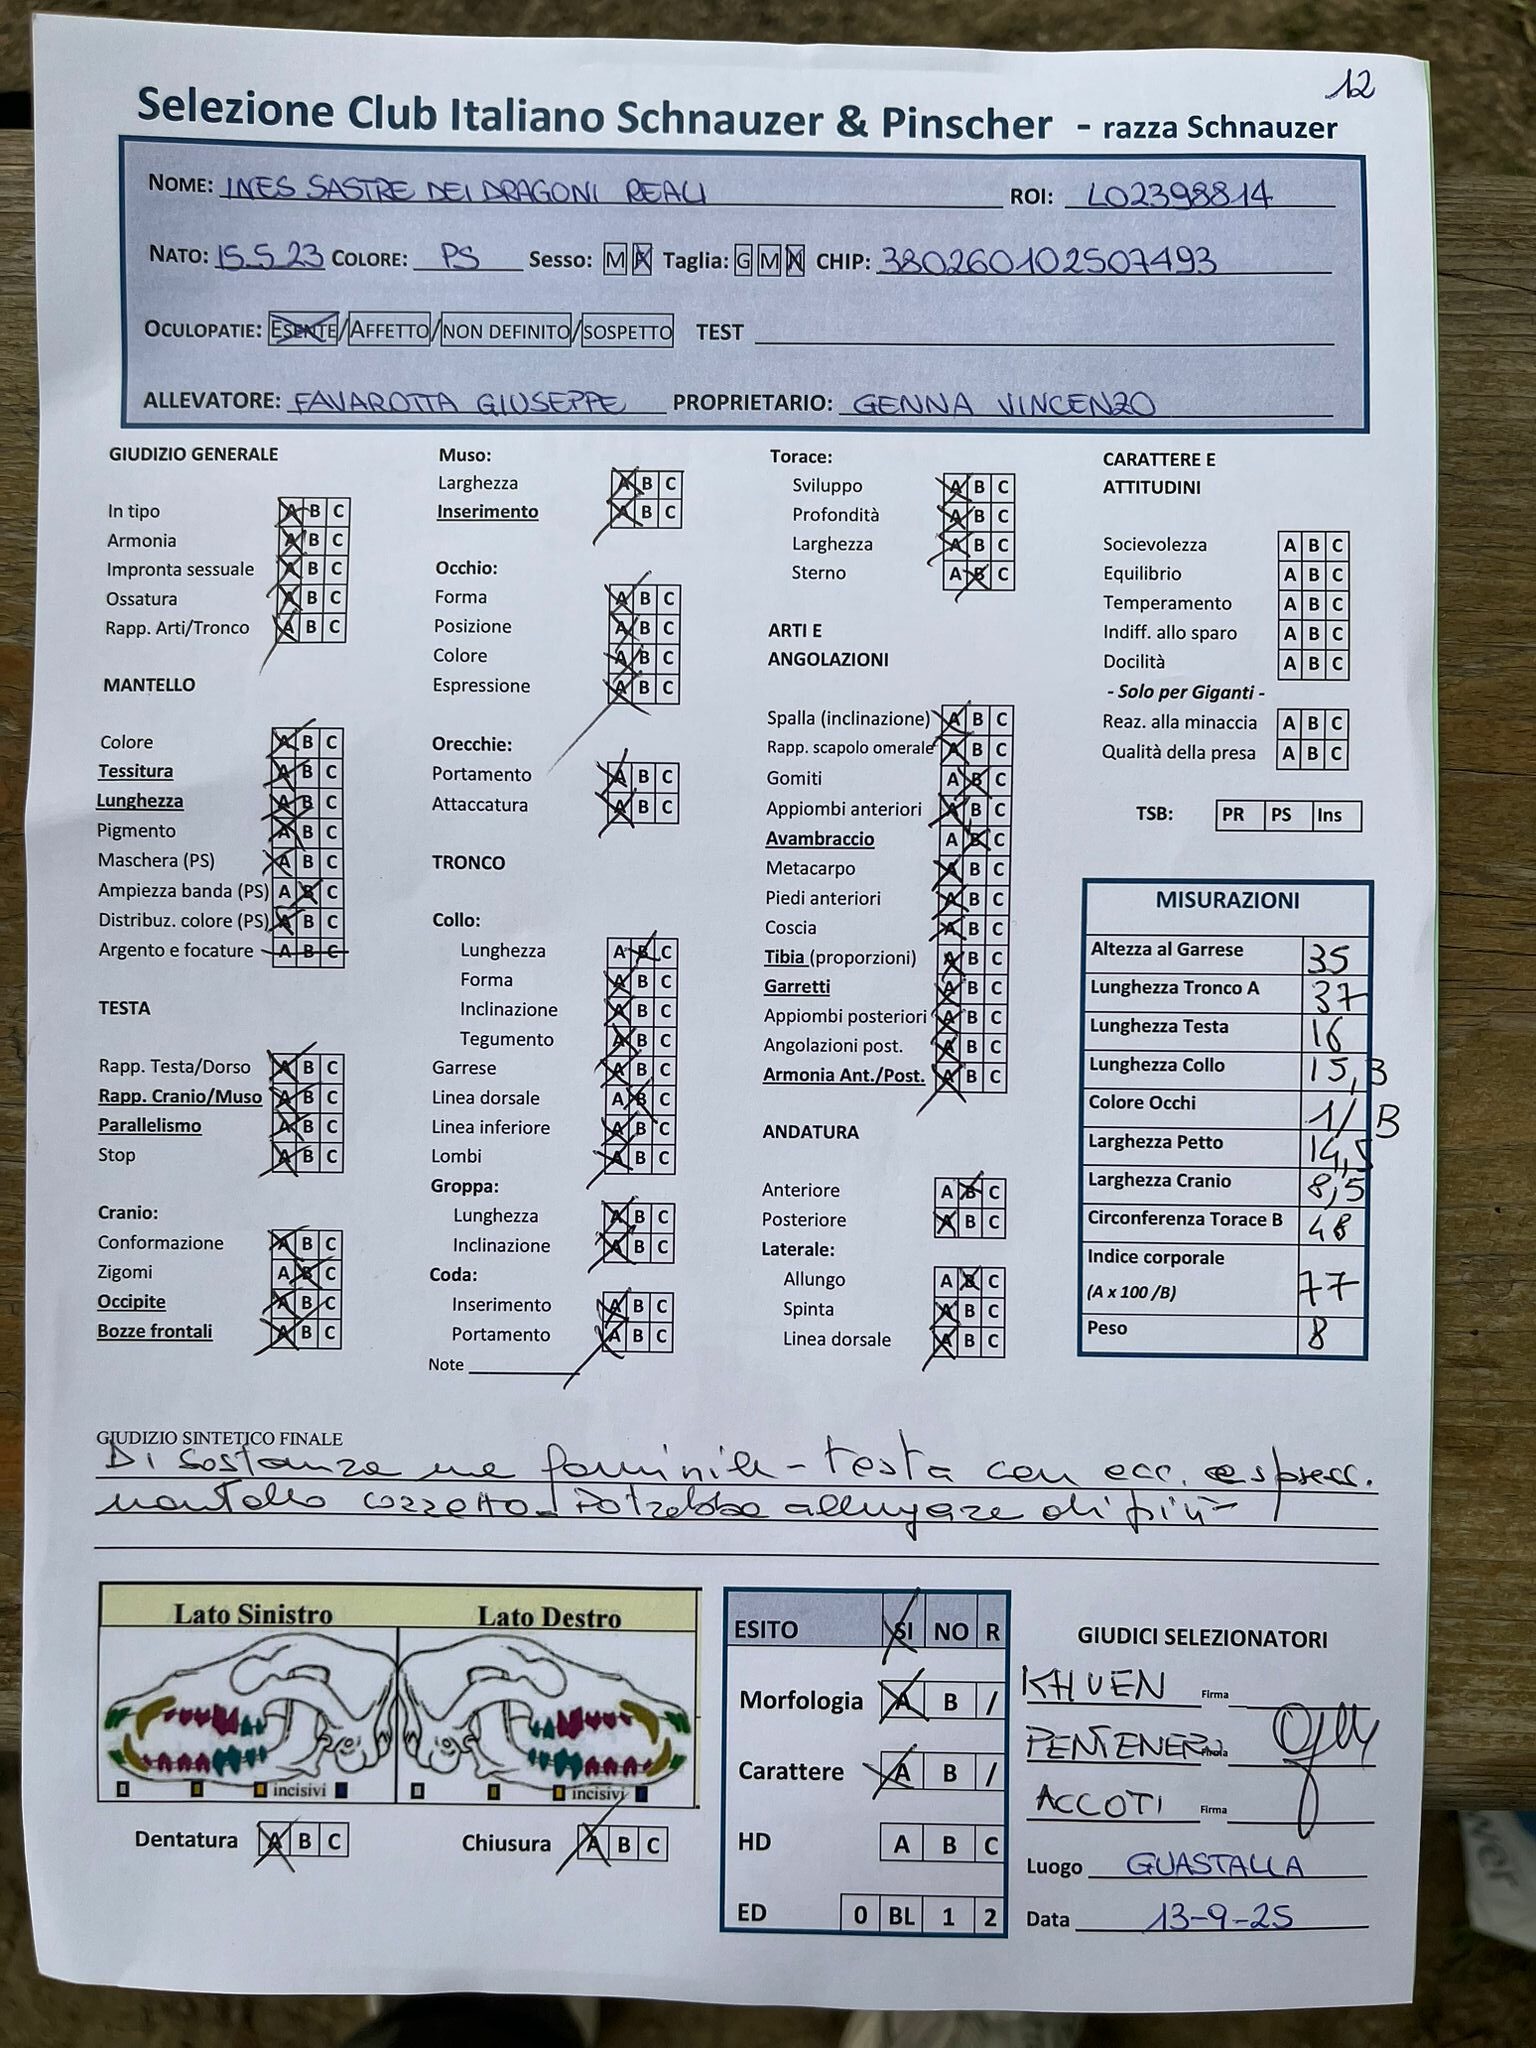 12
Selezione Club Italiano Schnauzer & Pinscher - razza Schnauzer
NOME: INES SASTRE DEI DRAGONI REALI ROI: LO2398814
NATO: 15.5.23 COLORE: PS Sesso: M Taglia: G M N CHIP: 380260102507493
OCULOPATIE: ESENTE/AFFETTO/NON DEFINITO/SOSPETTO TEST
ALLEVATORE: FAVAROTTA GIUSEPPE PROPRIETARIO: GENNA VINCENZO
GIUDIZIO GENERALE
In tipo A B C
Armonia A B C
Impronta sessuale A B C
Ossatura A B C
Rapp. Arti/Tronco A B C
MANTELLO
Colore A B C
Tessitura A B C
Lunghezza A B C
Pigmento A B C
Maschera (PS) A B C
Ampiezza banda (PS) A B C
Distribuz. colore (PS) A B C
Argento e focature A B C
TESTA
Rapp. Testa/Dorso A B C
Rapp. Cranio/Muso A B C
Parallelismo A B C
Stop A B C
Cranio:
Conformazione A B C
Zigomi A B C
Occipite A B C
Bozze frontali A B C
Muso:
Larghezza A B C
Inserimento A B C
Occhio:
Forma A B C
Posizione A B C
Colore A B C
Espressione A B C
Orecchie:
Portamento A B C
Attaccatura A B C
TRONCO
Collo:
Lunghezza A B C
Forma A B C
Inclinazione A B C
Tegumento A B C
Garrese A B C
Linea dorsale A B C
Linea inferiore A B C
Lombi A B C
Groppa:
Lunghezza A B C
Inclinazione A B C
Coda:
Inserimento A B C
Portamento A B C
Note
Torace:
Sviluppo A B C
Profondità A B C
Larghezza A B C
Sterno A B C
ARTI E
ANGOLAZIONI
Spalla (inclinazione) A B C
Rapp. scapolo omerale A B C
Gomiti A B C
Appiombi anteriori A B C
Avambraccio A B C
Metacarpo A B C
Piedi anteriori A B C
Coscia A B C
Tibia (proporzioni) A B C
Garretti A B C
Appiombi posteriori A B C
Angolazioni post. A B C
Armonia Ant./Post. A B C
ANDATURA
Anteriore A B C
Posteriore A B C
Laterale:
Allungo A B C
Spinta A B C
Linea dorsale A B C
CARATTERE E
ATTITUDINI
Socievolezza A B C
Equilibrio A B C
Temperamento A B C
Indiff. allo sparo A B C
Docilità A B C
- Solo per Giganti -
Reaz. alla minaccia A B C
Qualità della presa A B C
TSB: PR PS Ins
MISURAZIONI
Altezza al Garrese 35
Lunghezza Tronco A 37
Lunghezza Testa 16
Lunghezza Collo 15,B
Colore Occhi 1/B
Larghezza Petto 14,5
Larghezza Cranio 8,5
Circonferenza Torace B 48
Indice corporale
(A x 100 /B) 77
Peso 8
GIUDIZIO SINTETICO FINALE
Di sostanza ma femminile - testa con ecc. espress.
mantello corretto. Potrebbe allungare di più -
Lato Sinistro Lato Destro
incisivi incisivi
Dentatura A B C Chiusura A B C
ESITO SI NO R
Morfologia A B /
Carattere A B /
HD A B C
ED 0 BL 1 2
GIUDICI SELEZIONATORI
KHUEN Firma
PENTENERO Firma
ACCOTI Firma
Luogo GUASTALLA
Data 13-9-25